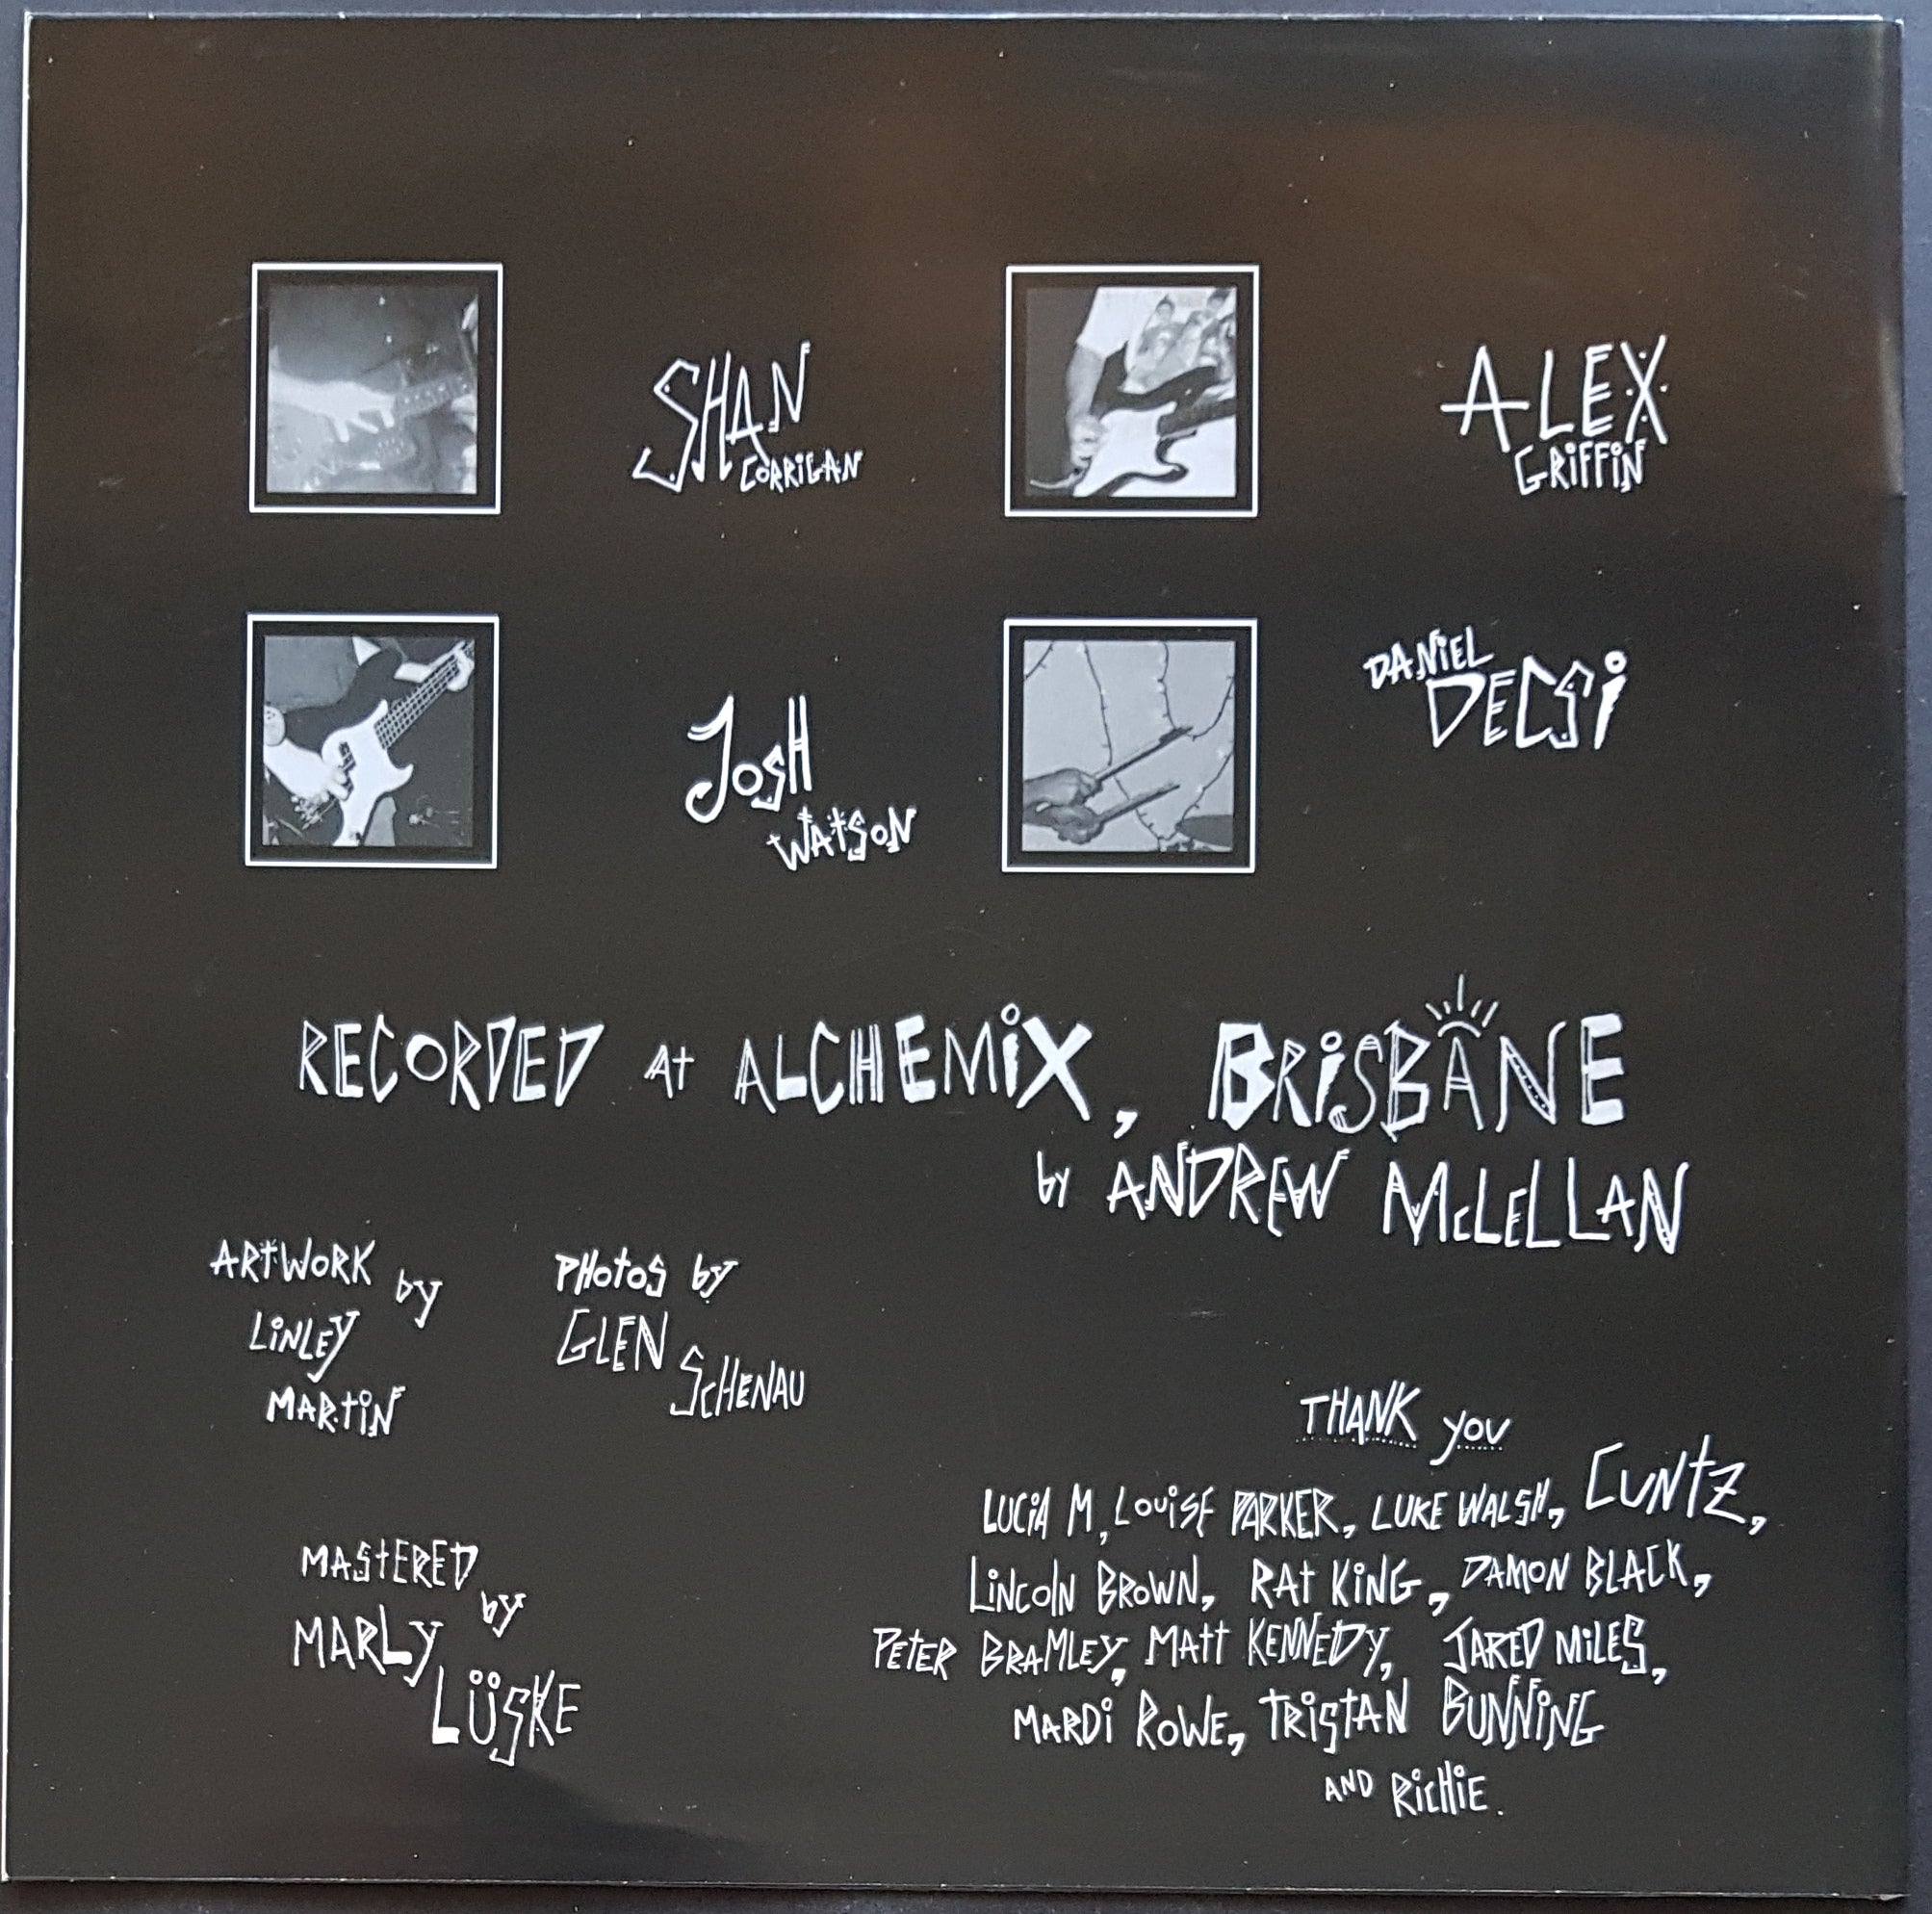 SHAN
CORRiGAN
ALEX
GRiFFiN
JOSH
WAtSON
DANiEL
DECSi
RECORDED At ALCHEMiX, BRiSBANE
by ANDREW McLELLAN
ARtWORK by
LiNLEY
MARtiN
PHOtOS by
GLEN
SCHENAU
MAStERED
by
MARLy
LÜSKE
THANK you
LUCiA M, LOUiSE PARKER, LUKE WALSH, CUNtZ,
LiNCOLN BROWN, RAt KiNG, DAMON BLACK,
PEtER BRAMLEY, MAtt KENNEDY, JARED MiLES,
MARDi ROWE, TRiStAN BUNNiNG
AND RiCHiE.